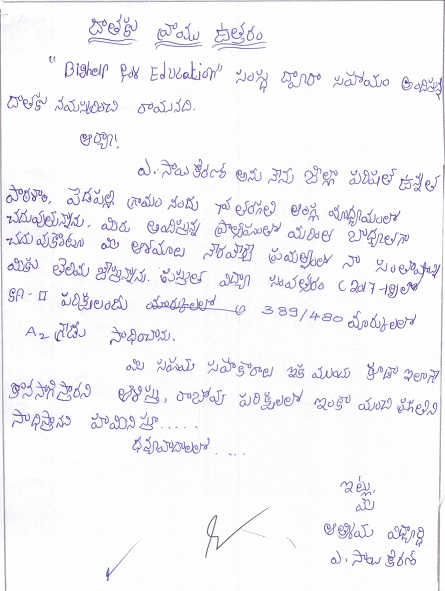 దాతకు వ్రాయు ఉత్తరం
"Bighelp for Education" సంస్థ ద్వారా సహాయం అందిస్తున్న
దాతకు నమస్కరించి రాయునది.
ఆర్యా!
ఎ. సాయి కిరణ్ అను నేను జిల్లా పరిషత్ ఉన్నత
పాఠశాల, పెదపల్లి గ్రామం నందు తరగతి ఆంగ్ల మాధ్యమంలో
చదువుతున్నాను. మీరు అందిస్తున్న ప్రోత్సాహంతో మరింత బాధ్యతగా
చదువుకొంటూ మీ ఆశయాలు నెరవేర్చే ప్రయత్నంలో నా సంతోషాన్ని
మీకు తెలియ జేస్తున్నాను. ప్రస్తుత విద్యా సంవత్సరం (2017-18)లో
SA-II పరీక్షలందు మార్కులలో 389/480 మార్కులలో
A2 గ్రేడు సాధించాను.
మీ సహాయ సహకారాలు ఇక ముందు కూడా ఇలాగే
కొనసాగిస్తారని ఆశిస్తూ, రాబోవు పరీక్షలలో ఇంకా మంచి ప్రగతిని
సాధిస్తానని హామీనిస్తూ.....
ధన్యవాదాలతో....
ఇట్లు,
మీ
ఆత్మీయ విద్యార్థి
ఎ. సాయి కిరణ్